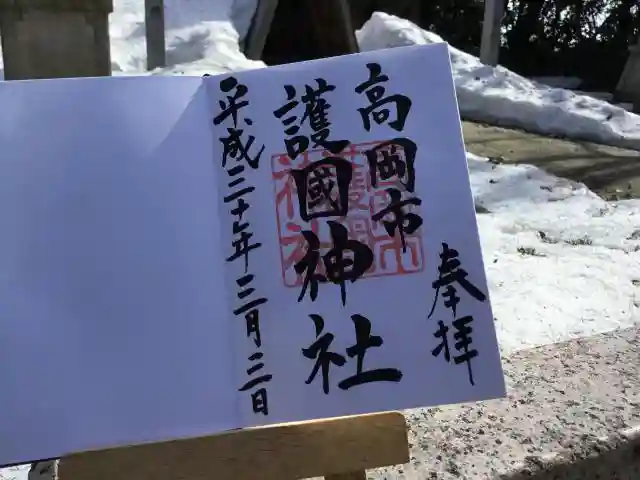 奉拝
高岡市
護國神社
平成三十年三月三日